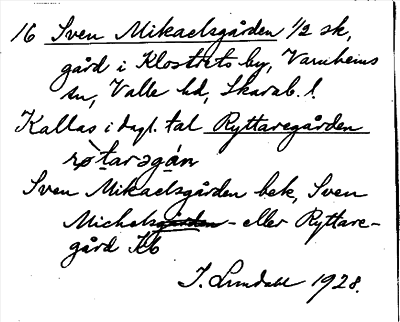 16 Sven Mikaelsgården 1/2 sk,
gård i Klostrets by, Varnhems
sn, Valle hd, Skarab. l.
Kallas i dagl. tal Ryttaregården
rø̀taragán
Sven Mikaelsgården bek, Sven
Michelsgården - eller Ryttare-
gård Kb
I. Lundahl 1928.